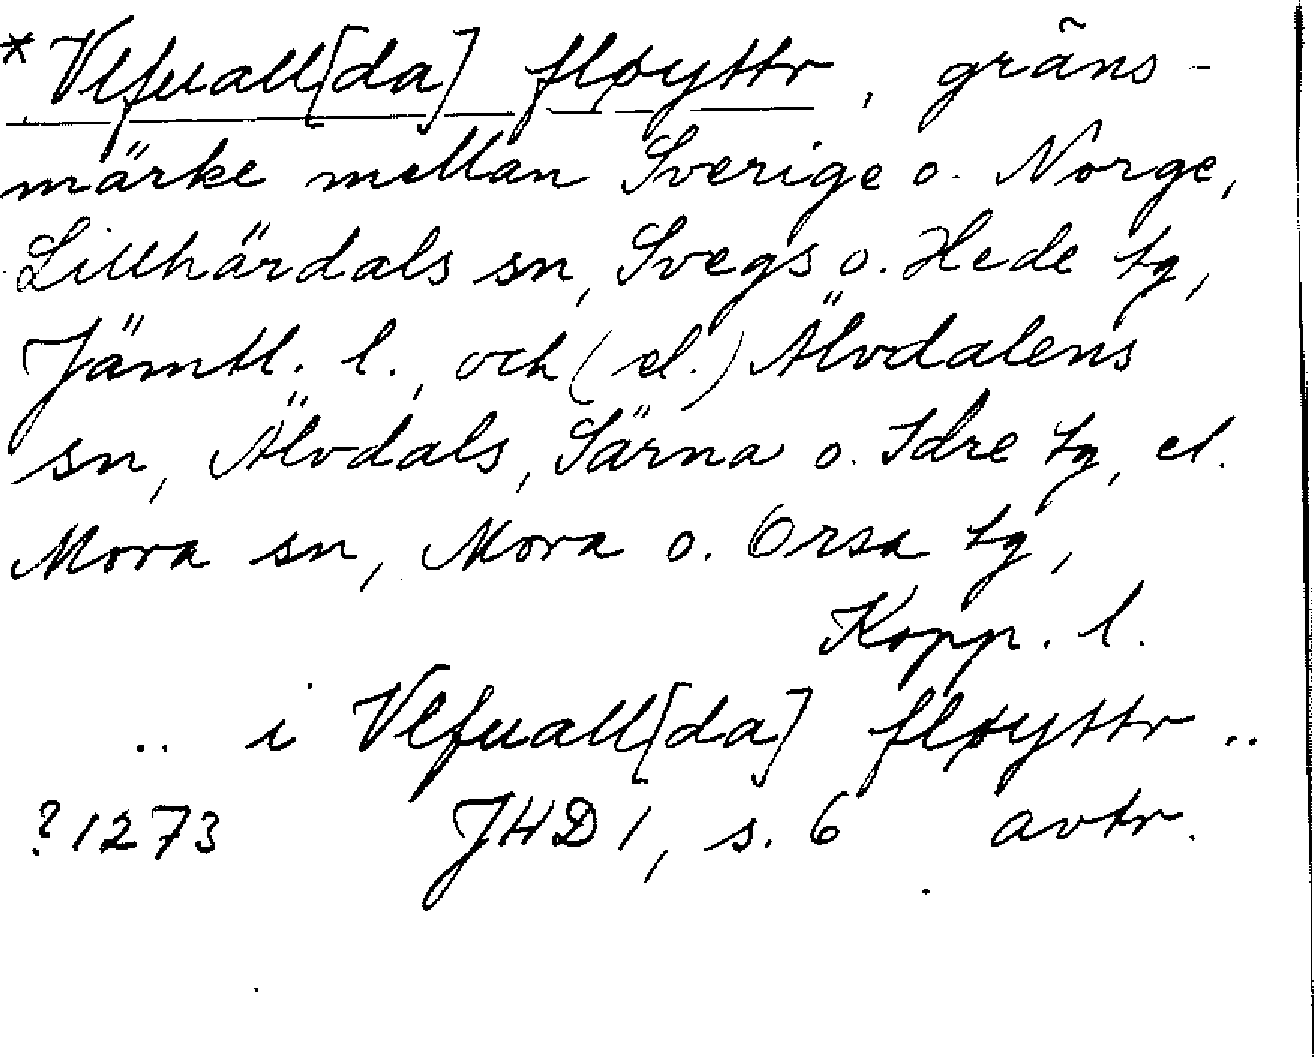 * Vlfuall[da] fløyttr, gräns-
märke mellan Sverige o. Norge,
Lillhärdals sn, Svegs o. Hede tg,
Jämtl. l., och (el.) Älvdalens
sn, Älvdals, Särna o. Idre tg, el.
Mora sn, Mora o. Orsa tg,
Kopp. l.
.. i Vlfuall[da] fløyttr ..
?1273 JHD 1, s. 6 avtr.